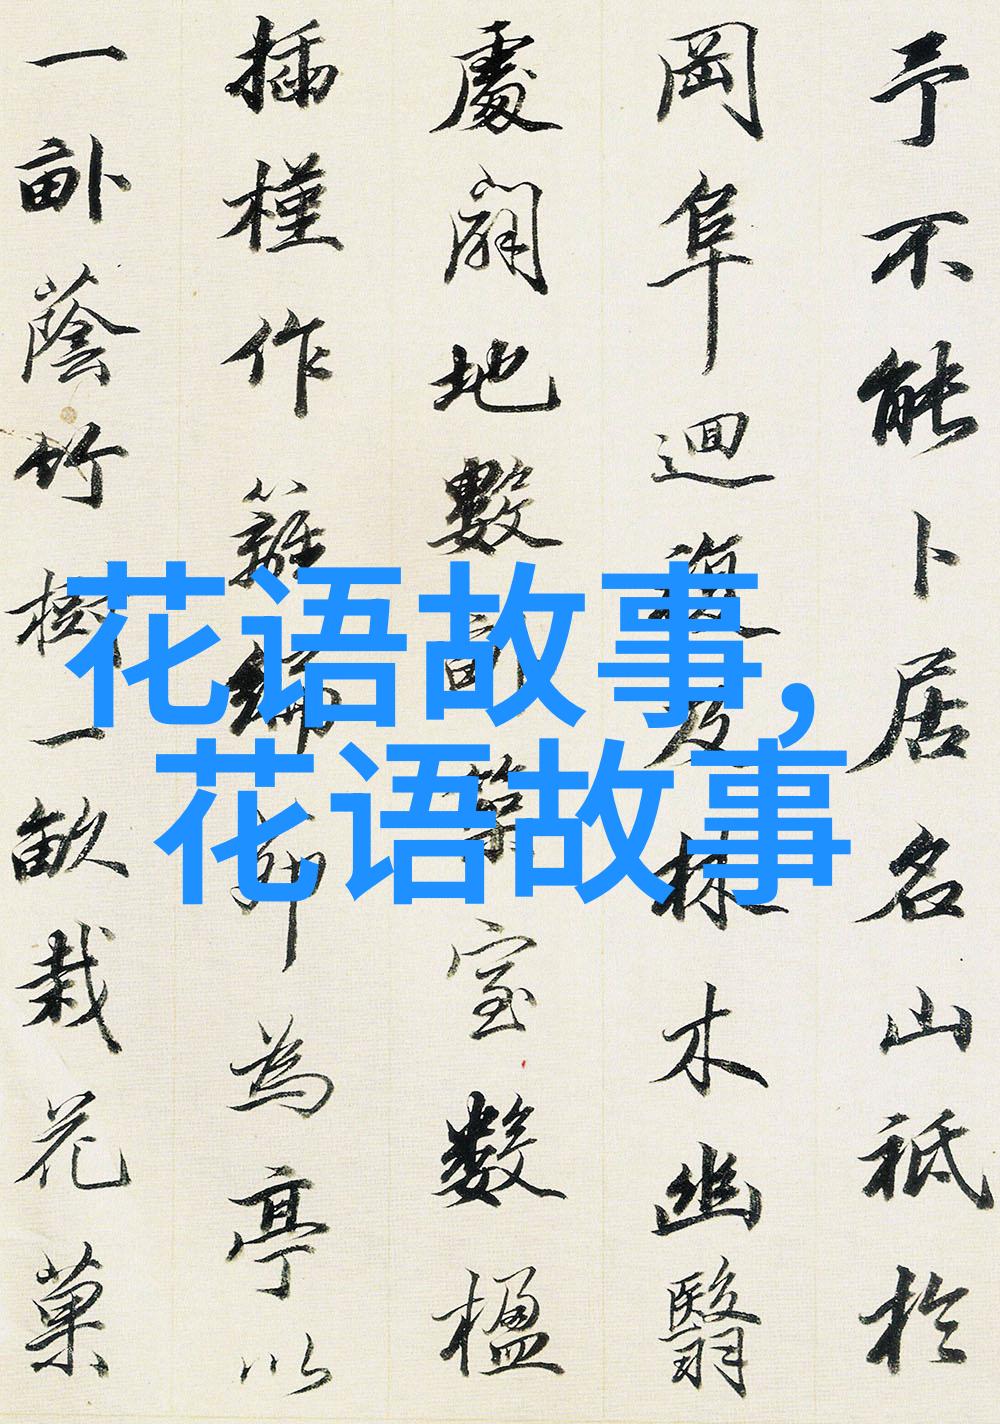 予不能卜居名山祗於
岡阜迴複及林木幽翳
處闢地數畝築室數楹
插槿作籬編茆為亭以
一畝蔭竹樹一畝栽花菓
花语故事,
花语故事